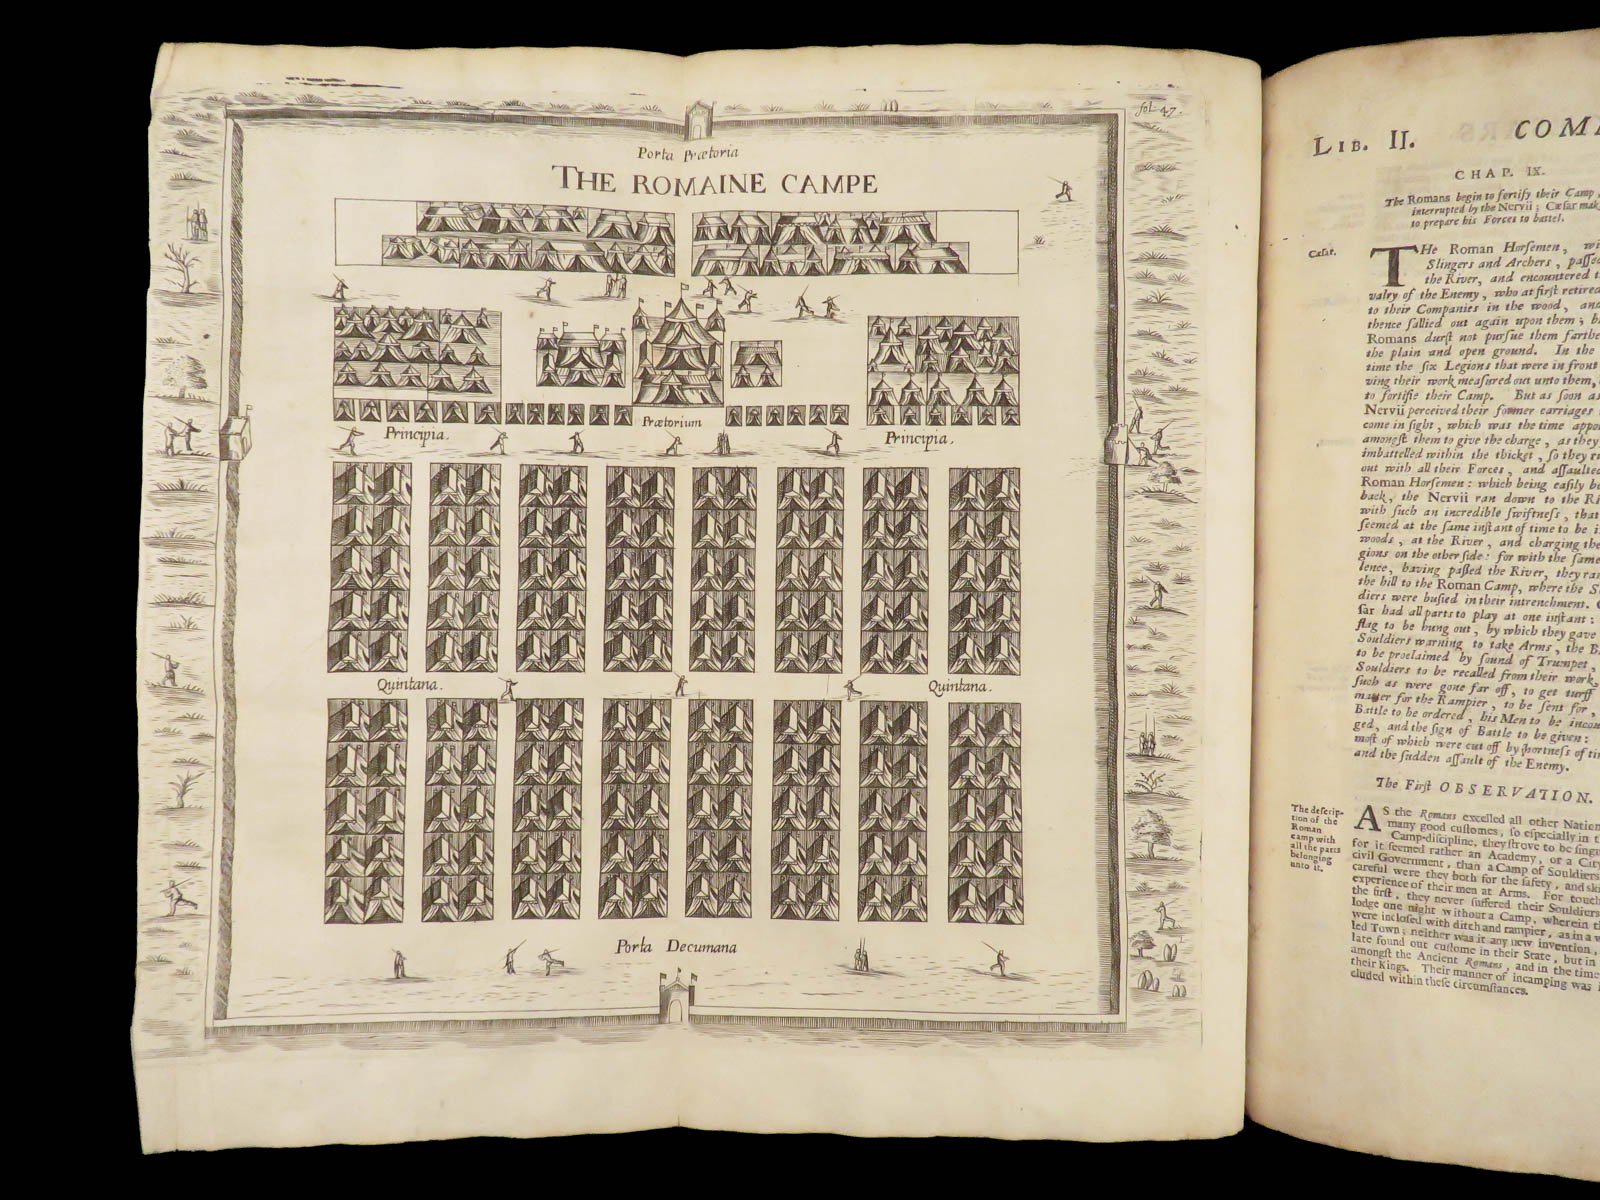 fol. 47.
Porta Prætoria
THE ROMAINE CAMPE
Prætorium
Principia.
Principia.
Quintana.
Quintana.
Porta Decumana
LIB. II. COM
CHAP. IX.
The Romans begin to fortify their Camp,
interrupted by the Nervii; Cæsar
to prepare his Forces to battel.
Cæsar.
THe Roman Horsemen,
Slingers and Archers,
the River, and encountered
valry of the Enemy, who at first retired
to their Companies in the wood,
thence sallied out again upon them;
Romans durst not pursue them
the plain and open ground. In the
time the six Legions that were in front
ving their work measured out unto them,
to fortifie their Camp. But as soon as
Nervii perceived their former carriages
come in sight, which was the time
amongst them to give the charge, as they
imbattelled within the thicket, so they
out with all their Forces, and
Roman Horsemen: which being easily
back, the Nervii ran down to the
with such an incredible swiftness, that
seemed at the same instant of time to be
woods, at the River, and charging the
gions on the other side: for with the same
lence, having passed the River, they
the hill to the Roman Camp, where the
diers were busied in their intrenchment.
sar had all parts to play at one instant:
flag to be hung out, by which they gave
Souldiers warning to take Arms, the
to be proclaimed by sound of Trumpet,
Souldiers to be recalled from their work,
such as were gone far off, to get turff
matter for the Rampier, to be sent for,
Battle to be ordered, his Men to be
ged, and the sign of Battle to be given:
most of which were cut off by shortness of
and the sudden assault of the Enemy.
The First OBSERVATION.
The descrip-
tion of the
Roman
camp with
all the parts
belonging
unto it.
AS the Romans excelled all other
many good customes, so especially in
Camp-discipline, they strove to be
for it seemed rather an Academy, or a
civil Government, than a Camp of Souldiers
careful were they both for the safety, and
experience of their men at Arms. For
the first, they never suffered their Souldiers
lodge one night without a Camp, wherein
were inclosed with ditch and rampier, as in a
led Town: neither was it any new invention,
late found out custome in their State, but in
amongst the Ancient Romans, and in the
their Kings. Their manner of incamping was
cluded within these circumstances.